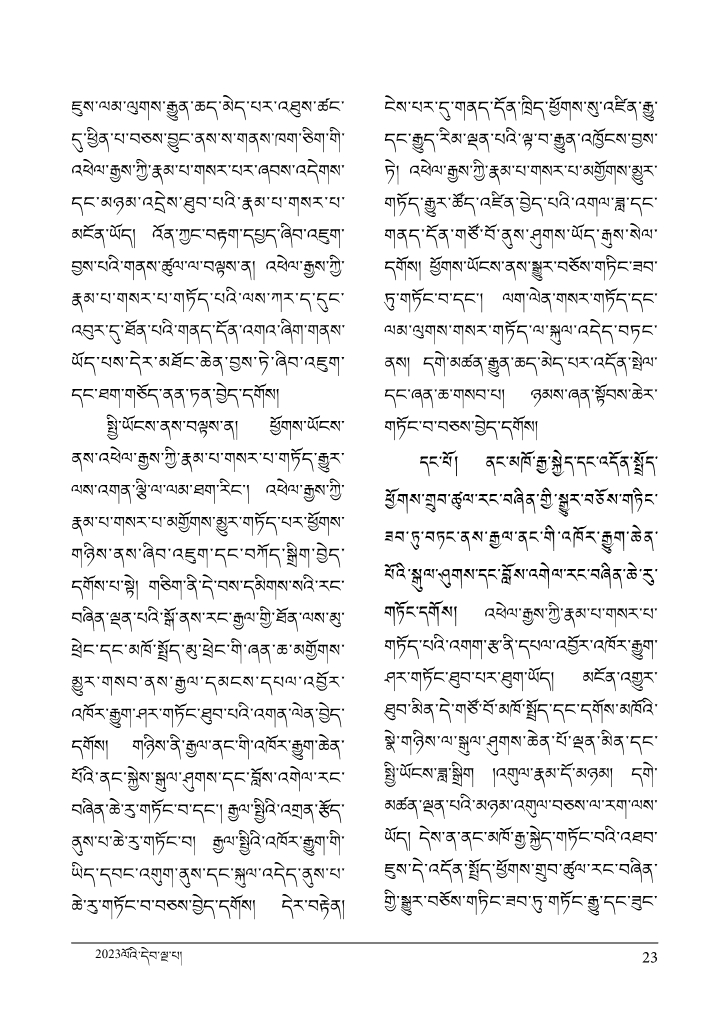 ཇུས་ལམ་ལུགས་རྒྱུན་ཆད་མེད་པར་འཐུས་ཚང་
དུ་ཕྱིན་པ་བཅས་བྱུང་ནས་ས་གནས་ཁག་ཅིག་གི་
འཕེལ་རྒྱས་ཀྱི་རྣམ་པ་གསར་པར་ཞབས་འདེགས་
དང་མཉམ་འདྲེས་ཐུབ་པའི་རྣམ་པ་གསར་པ་
མངོན་ཡོད། འོན་ཀྱང་བརྟག་དཔྱད་ཞིབ་འཇུག་
བྱས་པའི་གནས་ཚུལ་ལ་བལྟས་ན། འཕེལ་རྒྱས་ཀྱི་
རྣམ་པ་གསར་པ་གཏོད་པའི་ལས་ཀར་ད་དུང་
འབུར་དུ་ཐོན་པའི་གནད་དོན་འགའ་ཞིག་གནས་
ཡོད་པས་དེར་མཐོང་ཆེན་བྱས་ཏེ་ཞིབ་འཇུག་
དང་ཐག་གཅོད་ནན་ཏན་བྱེད་དགོས།
སྤྱི་ཡོངས་ནས་བལྟས་ན། ཕྱོགས་ཡོངས་
ནས་འཕེལ་རྒྱས་ཀྱི་རྣམ་པ་གསར་པ་གཏོད་རྒྱུར་
ལས་འགན་ལྕི་ལ་ལམ་ཐག་རིང༌། འཕེལ་རྒྱས་ཀྱི་
རྣམ་པ་གསར་པ་མགྱོགས་མྱུར་གཏོད་པར་ཕྱོགས་
གཉིས་ནས་ཞིབ་འཇུག་དང་བཀོད་སྒྲིག་བྱེད་
དགོས་པ་སྟེ། གཅིག་ནི་དེ་བས་དམིགས་སའི་རང་
བཞིན་ལྡན་པའི་སྒོ་ནས་རང་རྒྱལ་གྱི་ཐོན་ལས་མུ་
ཕྲེང་དང་མཁོ་སྤྲོད་མུ་ཕྲེང་གི་ཞན་ཆ་མགྱོགས་
མྱུར་གསབ་ནས་རྒྱལ་དམངས་དཔལ་འབྱོར་
འཁོར་རྒྱུག་ཤར་གཏོང་ཐུབ་པའི་འགན་ལེན་བྱེད་
དགོས། གཉིས་ནི་རྒྱལ་ནང་གི་འཁོར་རྒྱུག་ཆེན་
པོའི་ནང་སྐྱེས་སྐུལ་ཤུགས་དང་བློས་འགེལ་རང་
བཞིན་ཆེ་རུ་གཏོང་བ་དང༌། རྒྱལ་སྤྱིའི་འགྲན་རྩོད་
ནུས་པ་ཆེ་རུ་གཏོང་བ། རྒྱལ་སྤྱིའི་འཁོར་རྒྱུག་གི་
ཡིད་དབང་འགུག་ནུས་དང་སྐུལ་འདེད་ནུས་པ་
ཆེ་རུ་གཏོང་བ་བཅས་བྱེད་དགོས། དེར་བརྟེན།
ངེས་པར་དུ་གནད་དོན་ཁྲིད་ཕྱོགས་སུ་འཛིན་རྒྱུ་
དང་རྒྱུད་རིམ་ལྡན་པའི་ལྟ་བ་རྒྱུན་འཁྱོངས་བྱས་
ཏེ། འཕེལ་རྒྱས་ཀྱི་རྣམ་པ་གསར་པ་མགྱོགས་མྱུར་
གཏོད་རྒྱུར་ཚོད་འཛིན་བྱེད་པའི་འགལ་ཟླ་དང་
གནད་དོན་གཙོ་བོ་ནུས་ཤུགས་ཡོད་རྒུས་སེལ་
དགོས། ཕྱོགས་ཡོངས་ནས་སྒྱུར་བཅོས་གཏིང་ཟབ་
ཏུ་གཏོང་བ་དང༌། ལག་ལེན་གསར་གཏོད་དང་
ལམ་ལུགས་གསར་གཏོད་ལ་སྐུལ་འདེད་བཏང་
ནས། དགེ་མཚན་རྒྱུན་ཆད་མེད་པར་འདོན་སྤེལ་
དང་ཞན་ཆ་གསབ་པ། ཉམས་ཞན་སྟོབས་ཆེར་
གཏོང་བ་བཅས་བྱེད་དགོས།
དང་པོ། ནང་མཁོ་རྒྱ་སྐྱེད་དང་འདོན་སྤྲོད་
ཕྱོགས་གྲུབ་ཚུལ་རང་བཞིན་གྱི་སྒྱུར་བཅོས་གཏིང་
ཟབ་ཏུ་བཏང་ནས་རྒྱལ་ནང་གི་འཁོར་རྒྱུག་ཆེན་
པོའི་སྐུལ་ཤུགས་དང་བློས་འགེལ་རང་བཞིན་ཆེ་རུ་
གཏོང་དགོས། འཕེལ་རྒྱས་ཀྱི་རྣམ་པ་གསར་པ་
གཏོད་པའི་འགག་རྩ་ནི་དཔལ་འབྱོར་འཁོར་རྒྱུག་
ཤར་གཏོང་ཐུབ་པར་ཐུག་ཡོད། མངོན་འགྱུར་
ཐུབ་མིན་དེ་གཙོ་བོ་མཁོ་སྤྲོད་དང་དགོས་མཁོའི་
སྣེ་གཉིས་ལ་སྐུལ་ཤུགས་ཆེན་པོ་ལྡན་མིན་དང་
སྤྱི་ཡོངས་ཟླ་སྒྲིག །འགུལ་རྣམ་དོ་མཉམ། དགེ་
མཚན་ལྡན་པའི་མཉམ་འགུལ་བཅས་ལ་རག་ལས་
ཡོད། དེས་ན་ནང་མཁོ་རྒྱ་སྐྱེད་གཏོང་བའི་འཐབ་
ཇུས་དེ་འདོན་སྤྲོད་ཕྱོགས་གྲུབ་ཚུལ་རང་བཞིན་
གྱི་སྒྱུར་བཅོས་གཏིང་ཟབ་ཏུ་གཏོང་རྒྱུ་དང་ཟུང་
2023ལོའི་དེབ་ལྔ་པ།
23